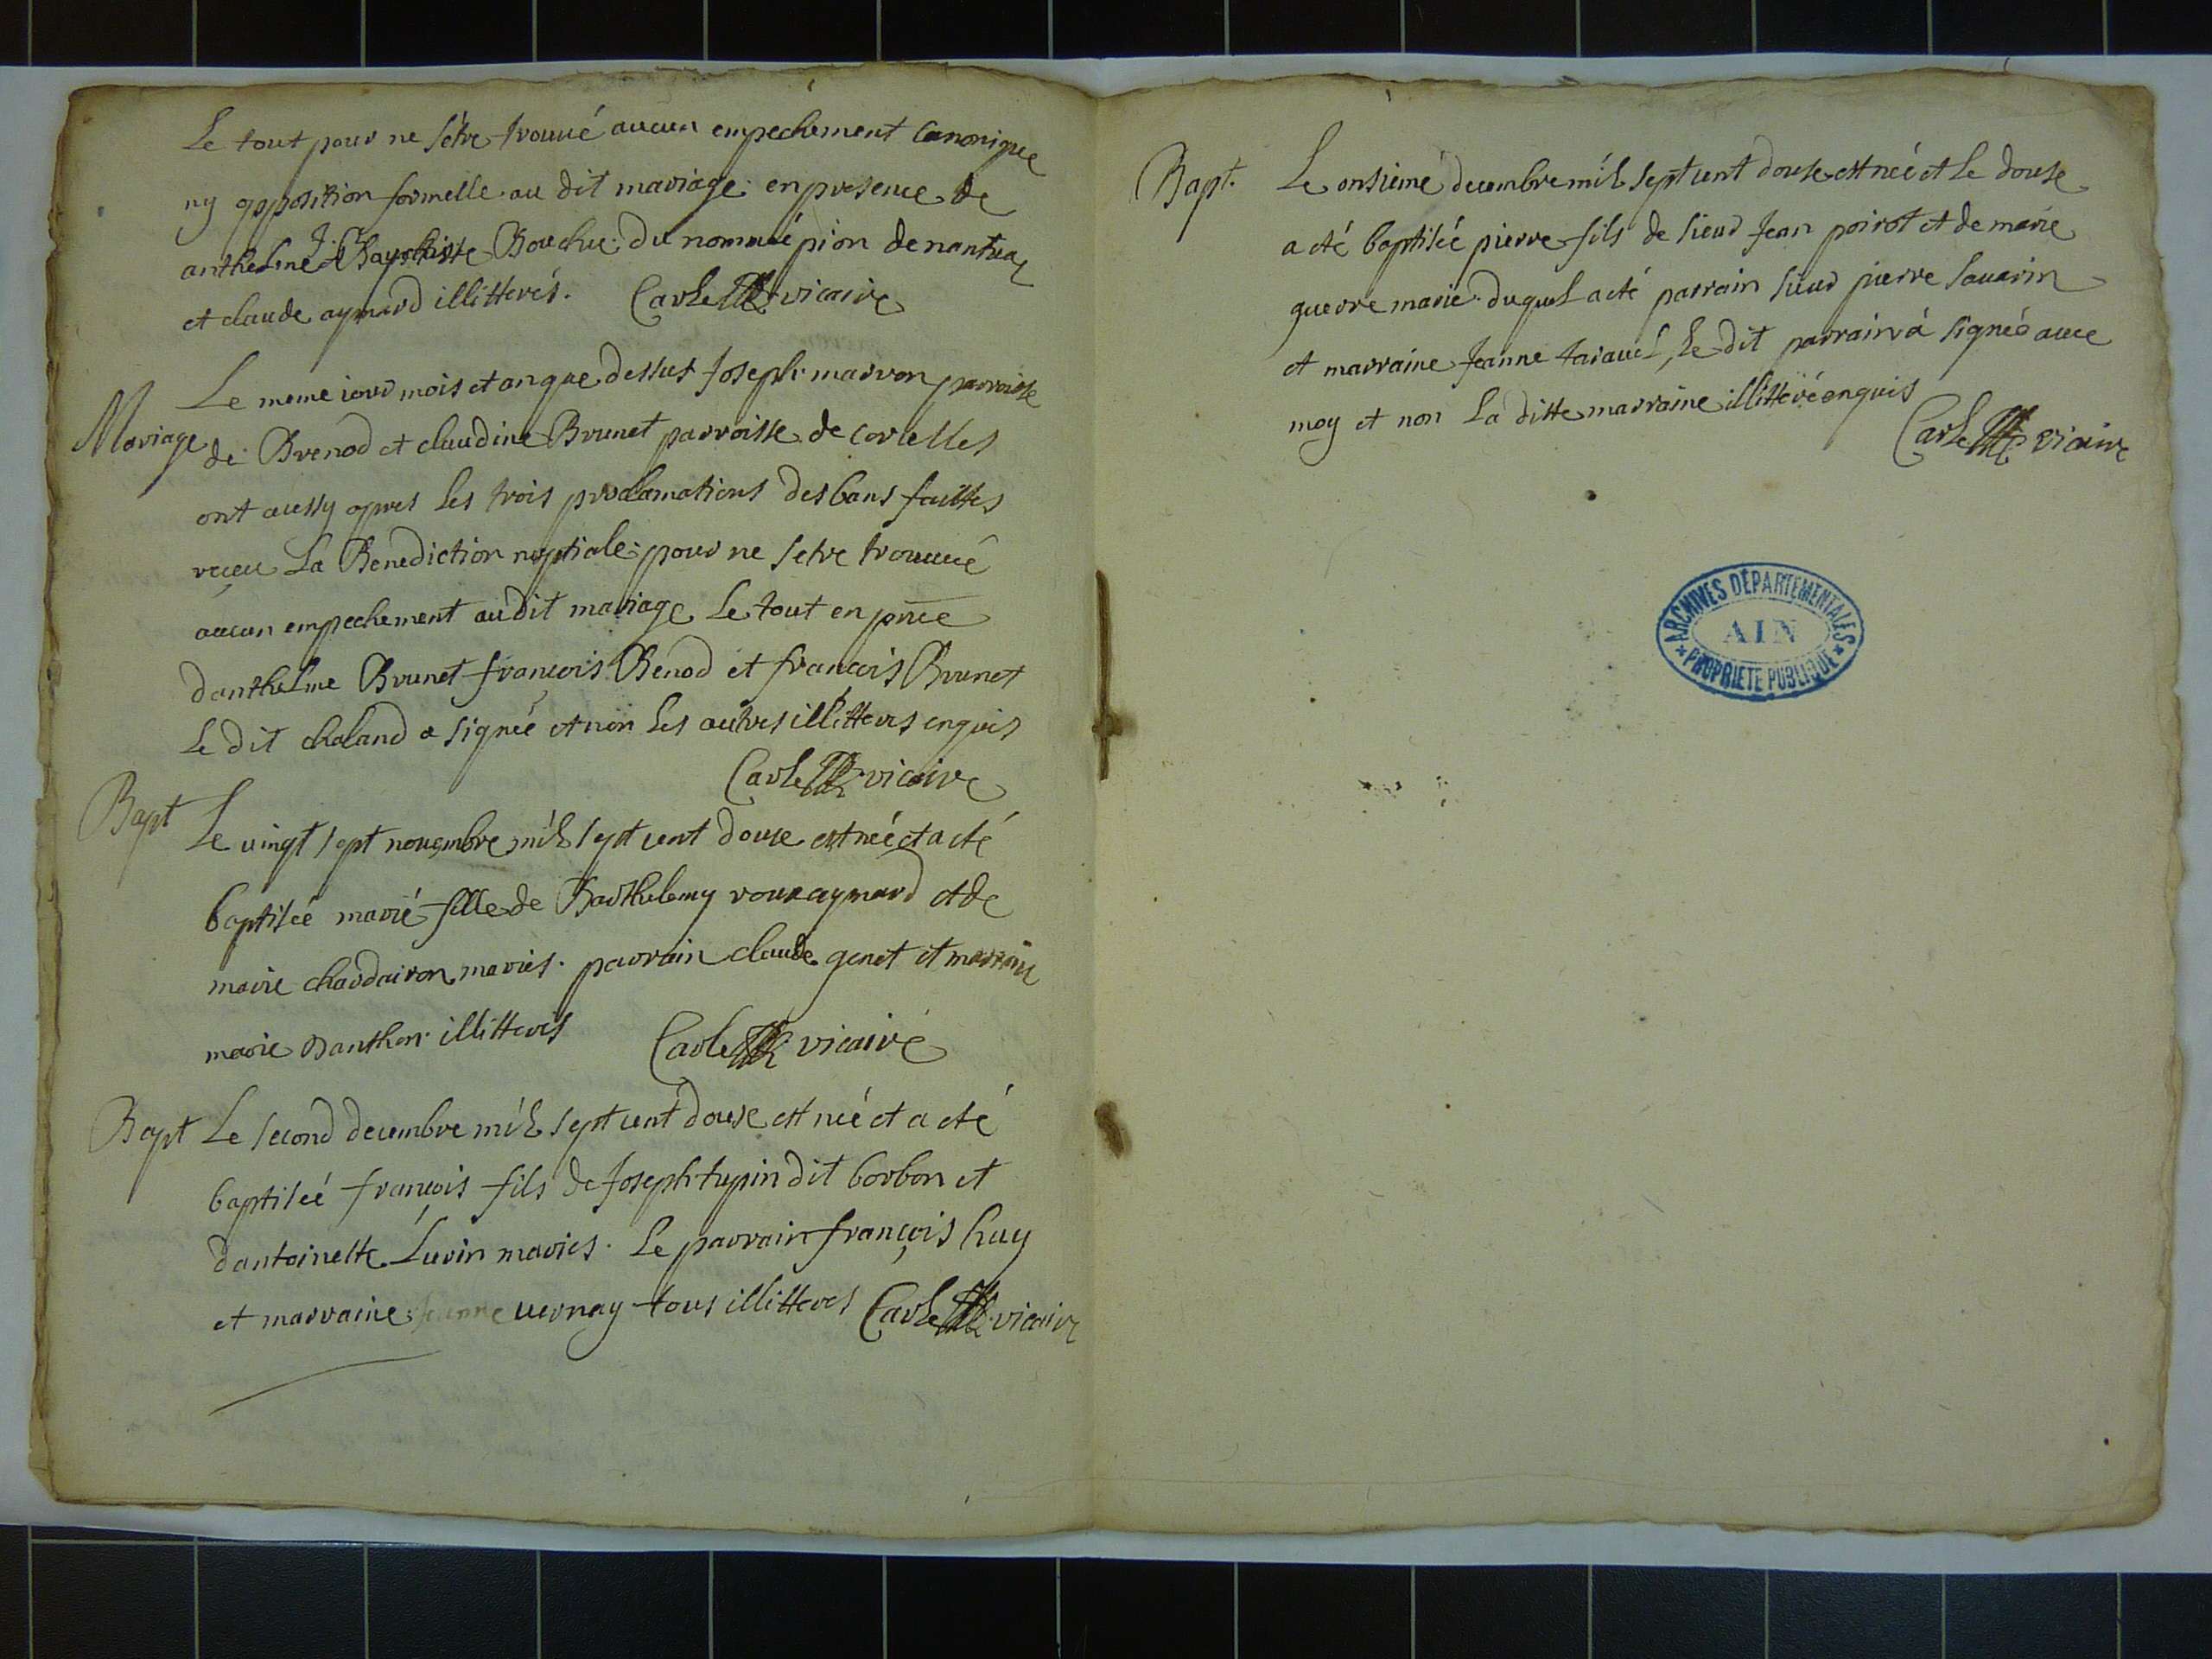 Le tout pour ne s'étre trouué aucun empechement canonique
ny opposition formelle au dit mariage en presence de
anthelme et J. Baptiste Bouchu, du nommé pion de nantua
et claude aymard illitterés. Carle vicaire
Mariage
Le meme iour mois et an que dessus Joseph marron parroisse
de Brenod et claudine Brunet parroisse de corcelles
ont aussy apres les trois proclamations des bans faittes
reçeu La Benediction nuptiale pour ne setre trouuué
aucun empechement audit mariage Le tout en pnce
danthelme Brunet françois Benod et françois Brunet
Le dit chaland a signée et non les autres illitteres enquis
Carle vicaire
Bapt
Le uingt sept nouembre mil sept cent douze est née et a eté
baptisée marie fille de Barthelemy roux aymard et de
marie chardairon mariés. parrain claude genet et marraine
marie danthon illitteres Carle vicaire
Bapt
Le second decembre mil sept cent douse est née et a eté
baptiseé françois fils de Joseph tupin dit borbon et
dantoinette Luvin mariés. Le parrain françois huy
et marraine Jeanne uernay tous illitteres Carle vicaire
Bapt.
Le onsieme decembre mil sept cent douse est neé et le douse
a eté baptiseé pierre fils de sieur Jean poirot et de marie
guerre marie. duquel a eté parrain sieur pierre sauarin
et marraine Jeanne tarauel, Le dit parrain à signée auec
moy et non La ditte marraine illitteré enquis
Carle vicaire
ARCHIVES DÉPARTEMENTALES
AIN
PROPRIETE PUBLIQUE